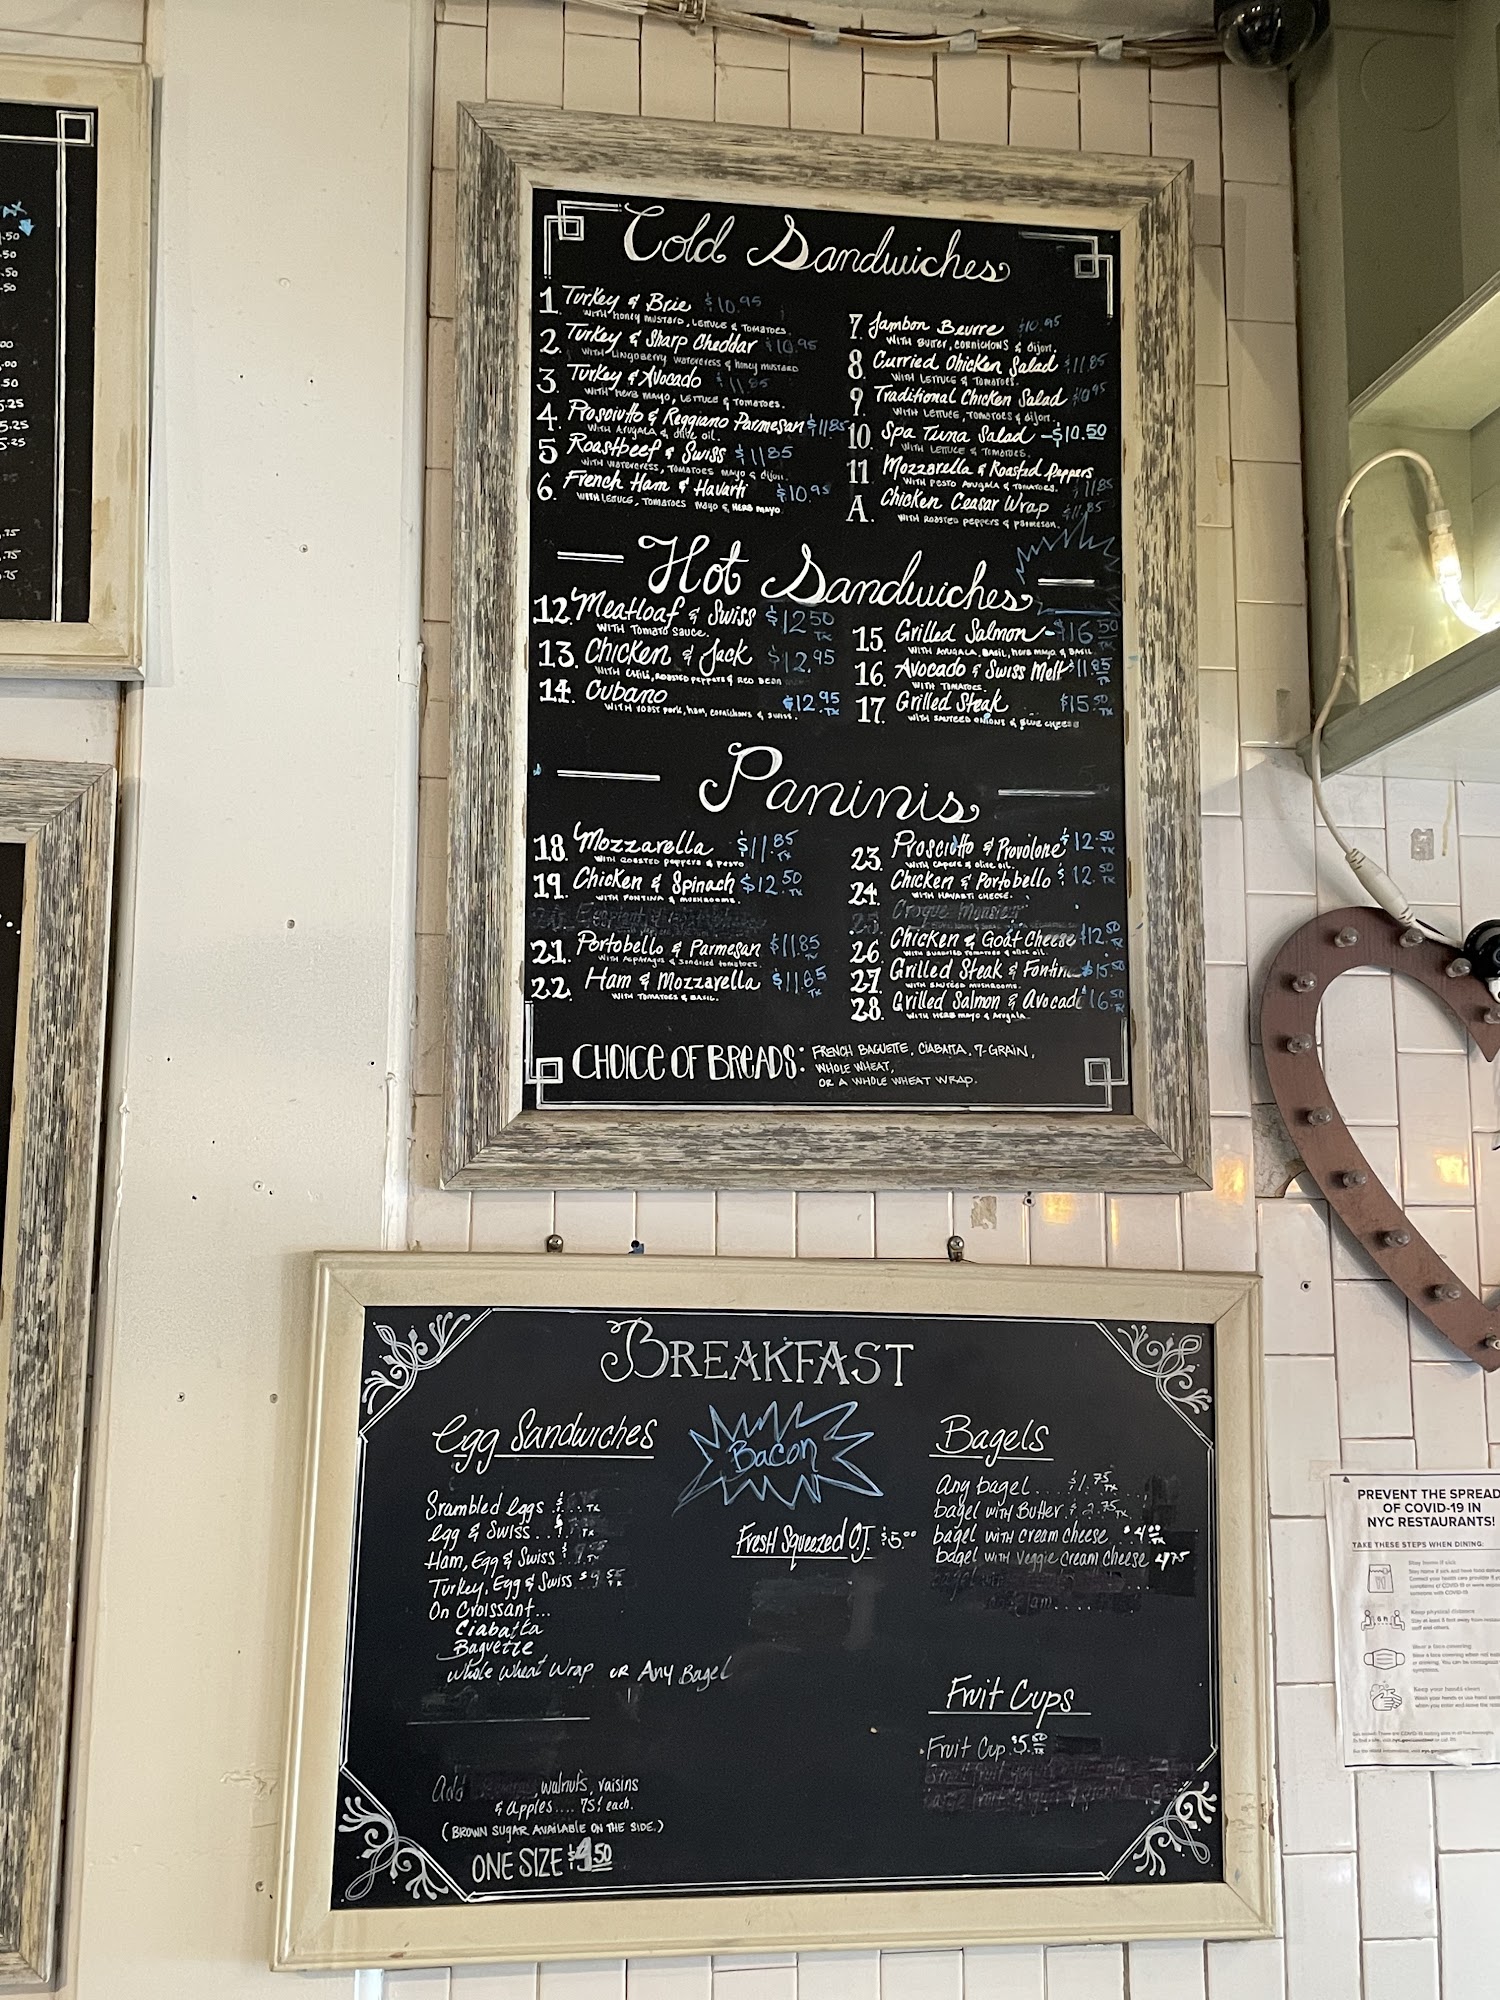 .50
.50
.50
.50
.50
5.25
5.25
5.25
.75
.75
.75
Cold Sandwiches
1 Turkey & Brie $10.95
WITH honey mustard, Lettuce & Tomatoes.
2. Turkey & Sharp Cheddar $10.95
WITH Lingoberry watercress & honey mustard
3. Turkey & Avocado $11.85
WITH herb mayo, Lettuce & Tomatoes.
4. Prosciutto & Reggiano Parmesan $11.85
WITH Arugala & olive oil.
5 Roastbeef & Swiss $11.85
WITH watercress, Tomatoes mayo & dijon.
6. French Ham & Havarti $10.95
WITH Lettuce, Tomatoes Mayo & Herb mayo
7. Jambon Beurre $10.95
WITH Butter, cornichons & dijon.
8. Curried Chicken Salad $11.85
WITH Lettuce & Tomatoes.
9. Traditional Chicken Salad $10.95
WITH Lettuce, Tomatoes & dijon.
10. Spa Tuna Salad -$10.50
WITH Lettuce & Tomatoes.
11 Mozzarella & Roasted Peppers
WITH Pesto Arugala & Tomatoes. $11.85
A. Chicken Ceasar Wrap $11.85
WITH Roasted peppers & parmesan.
Hot Sandwiches
12. Meatloaf & Swiss $12.50 TX
WITH Tomato sauce.
13. Chicken & Jack $12.95
WITH chili, roasted peppers & red bean
14. Cubano $12.95 TX
WITH roast pork, ham, cornichons & swiss.
15. Grilled Salmon -$16.50
WITH Arugala, Basil, herb mayo & Basil
16. Avocado & Swiss Melt $11.85
WITH Tomatoes.
17. Grilled Steak $15.50 TX
WITH sauteed onions & blue cheese
Paninis
18. Mozzarella $11.85 TX
WITH roasted peppers & pesto
19. Chicken & Spinach $12.50 TX
WITH Fontina & mushrooms.
21. Portobello & Parmesan $11.85
WITH Asparagus & sundried tomatoes.
22. Ham & Mozzarella $11.85 TX
WITH Tomatoes & Basil.
23. Prosciutto & Provolone $12.50 TX
WITH Capers & olive oil.
24. Chicken & Portobello $12.50 TX
WITH Havarti cheese.
25. Croque Monsieur
26. Chicken & Goat Cheese $12.50
WITH sundried tomatoes & olive oil.
27. Grilled Steak & Fontina $15.50
WITH sauteed mushrooms.
28. Grilled Salmon & Avocado 16.50
WITH Herb mayo & Arugala
CHOICE OF BREADS: FRENCH BAGUETTE, CIABATTA, 7-GRAIN,
WHOLE WHEAT,
OR A WHOLE WHEAT WRAP.
BREAKFAST
Egg Sandwiches
Srambled eggs $... TX
egg & Swiss... TX
Ham, Egg & Swiss $
Turkey, Egg & Swiss $
On Croissant...
Ciabatta
Baguette
Whole Wheat Wrap OR Any Bagel
Add , walnuts, raisins
& apples.... 75¢ each.
(BROWN SUGAR AVAILABLE ON THE SIDE.)
ONE SIZE $4.50
Bacon
Fresh Squeezed O.J. $5.00
Bagels
Any bagel.... $1.75 TX
bagel WITH Butter $2.75 TX
bagel WITH cream cheese $4.00 TX
bagel WITH Veggie cream cheese 4.75
Fruit Cups
Fruit Cup $5.50 TX
PREVENT THE SPREAD
OF COVID-19 IN
NYC RESTAURANTS!
TAKE THESE STEPS WHEN DINING:
Stay home if sick
Keep physical distance
Wear a face covering
Keep your hands clean